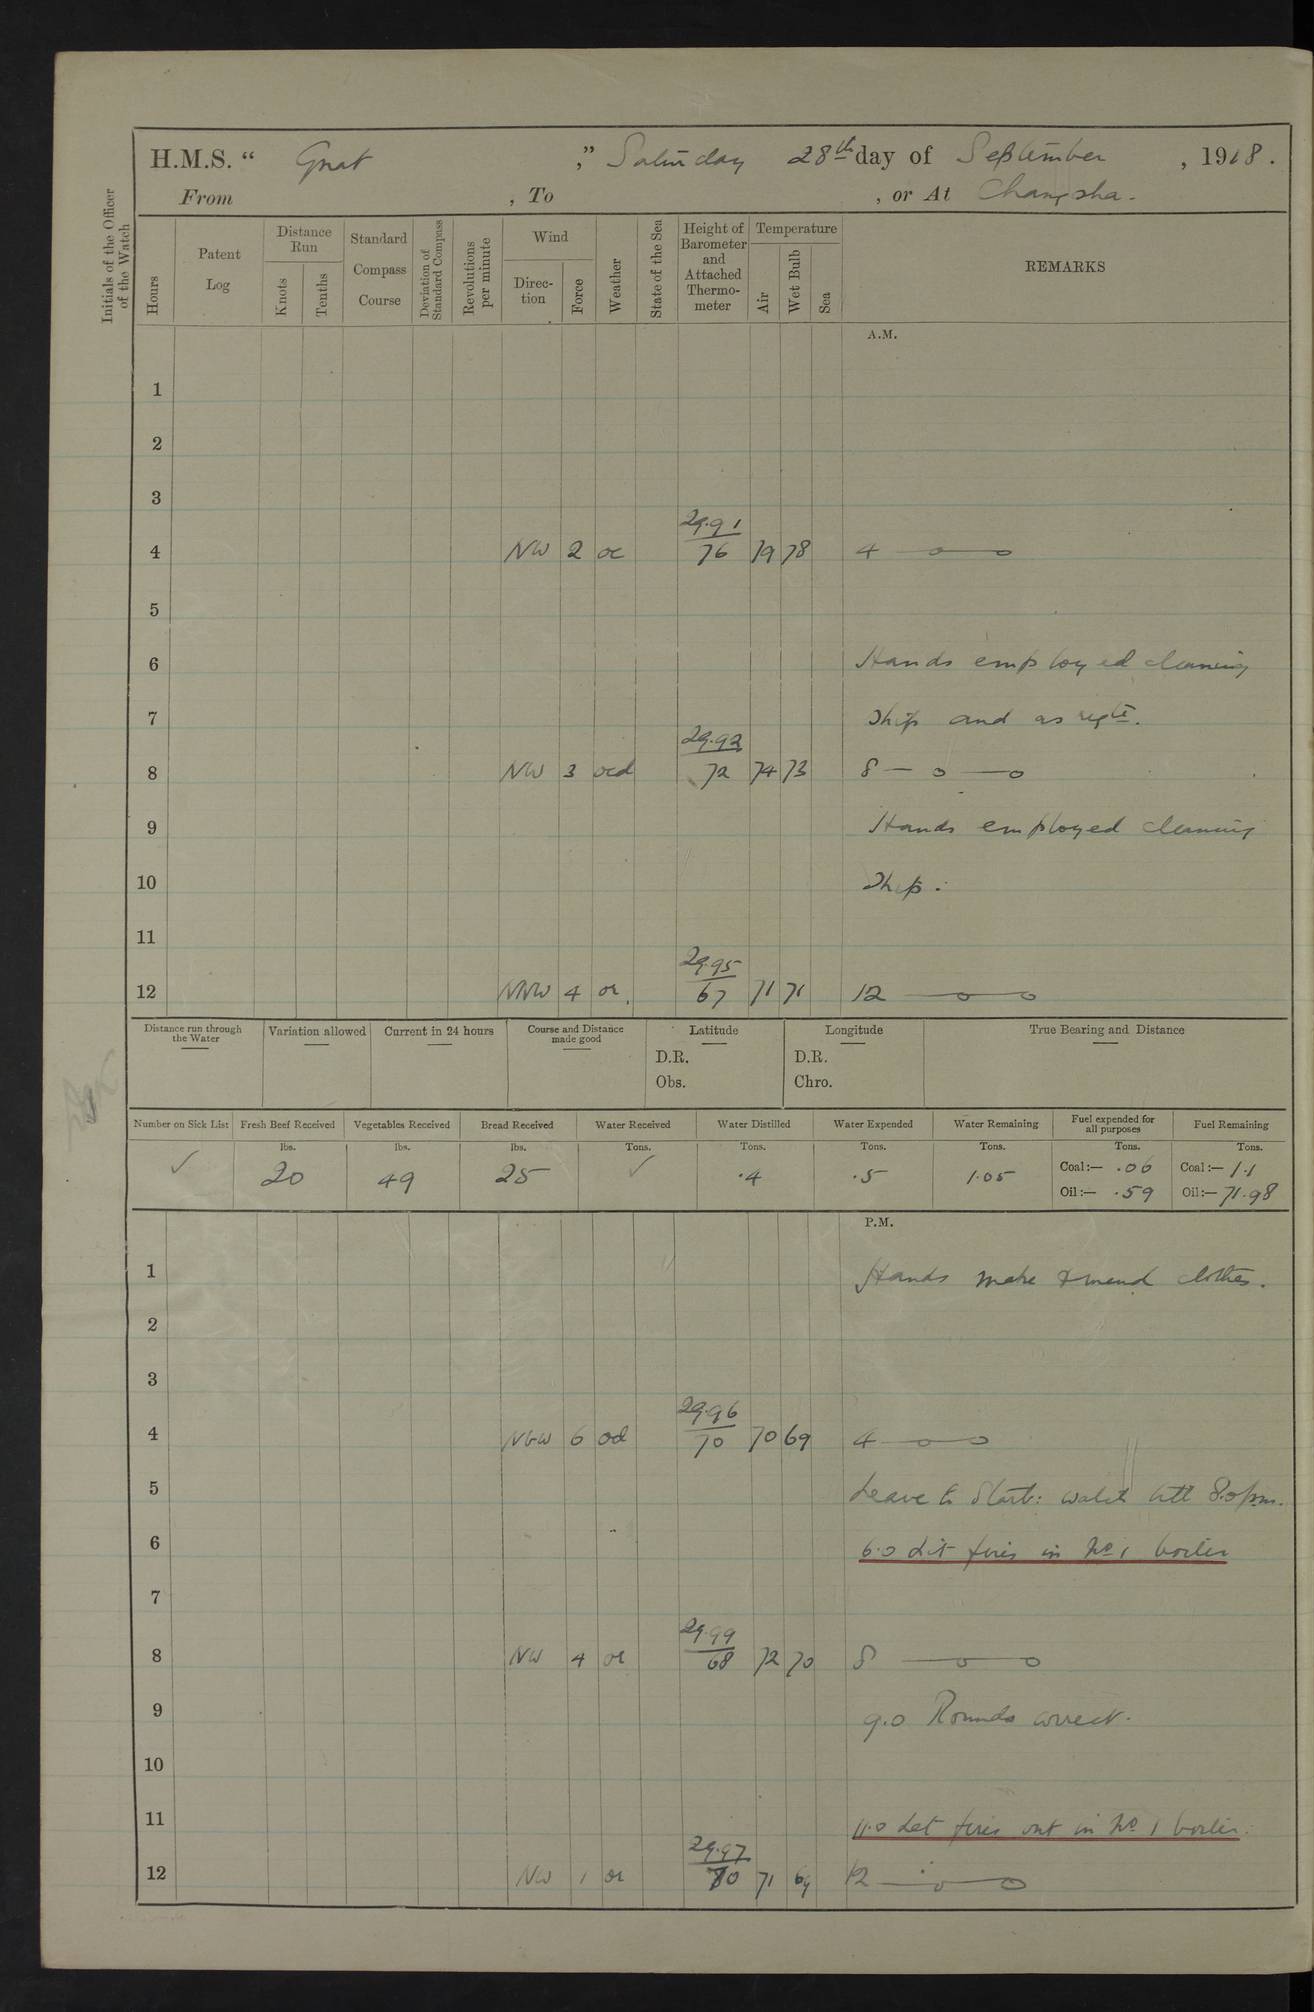 H.M.S. “ Gnat ,” Saturday 28th day of September , 1918.
From , To , or At Changsha.
Initials of the Officer of the Watch
Hours
Patent Log
Distance Run
Knots
Tenths
Standard Compass Course
Deviation of Standard Compass
Revolutions per minute
Wind
Direction
Force
Weather
State of the Sea
Height of Barometer and Attached Thermometer
Temperature
Air
Wet Bulb
Sea
REMARKS
A.M.
1
2
3
29.91
4 NW 2 oc 76 79 78 4 — o — o
5
6 Hands employed cleaning
7 Ship and as reqte.
29.92
8 NW 3 ocd 72 74 73 8 — o — o
9 Hands employed cleaning
10 Ship.
11
29.95
12 NNW 4 oc 67 71 71 12 — o — o
Distance run through the Water
Variation allowed
Current in 24 hours
Course and Distance made good
Latitude
D.R.
Obs.
Longitude
D.R.
Chro.
True Bearing and Distance
Number on Sick List Fresh Beef Received Vegetables Received Bread Received Water Received Water Distilled Water Expended Water Remaining Fuel expended for all purposes Fuel Remaining
lbs. lbs. lbs. Tons. Tons. Tons. Tons. Tons. Tons.
✓ 20 49 25 ✓ .4 .5 1.05 Coal:— .06 Coal:— 1.1
Oil:— .59 Oil:— 71.98
P.M.
1 Hands make & mend clothes.
2
3
29.96
4 NbW 6 od 70 70 69 4 — o — o
5 Leave to Starb: watch till 8.0pm.
6 6.0 Lit fires in No 1 boiler
7
29.99
8 NW 4 oc 68 72 70 8 — o — o
9 9.0 Rounds correct.
10
11 11.0 Let fires out in No 1 boiler.
29.97
12 NW 1 oc 70 71 69 12 — o — o